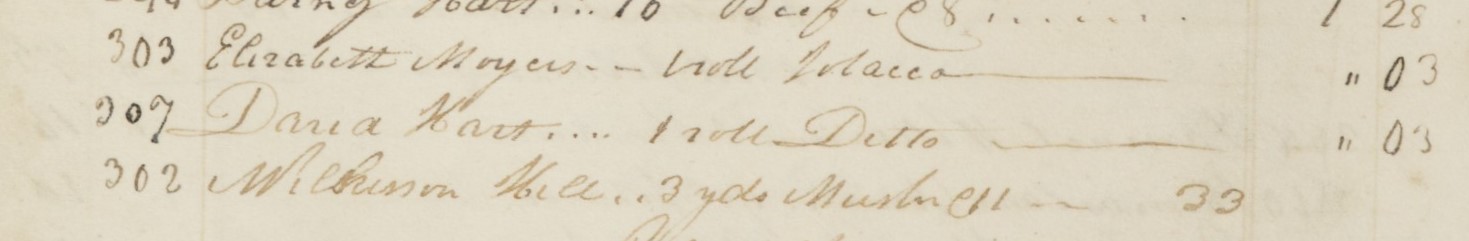 Hart... 16 Beef @ 8 ....... 1 28
303 Elizabeth Moyers -- 1 roll Tobacco — " 03
307 David Hart.... 1 roll Ditto — " 03
302 Wilkerson Hill.. 3 yds Muslin @ 11 -- 33